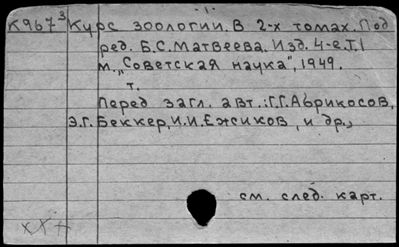 -1-
К967³ Курс зоологии. В 2-х томах. Под
ред. Б.С.Матвеева. Изд. 4-е.Т.I
м. „Советская наука", 1949.
т.
Перед загл. авт.: Г.Г.Абрикосов,
Э.Г. Беккер, И.И.Ежиков, и др.,
см. след. карт.